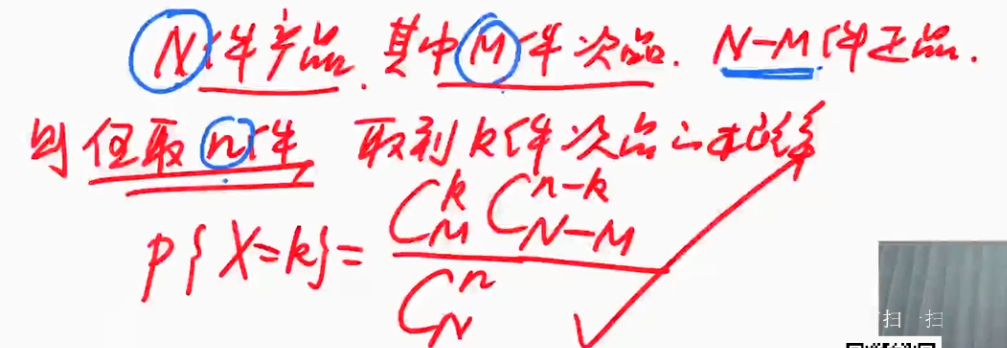 N件产品.其中M件次品. N-M件正品.
则任取n件 取到k件次品的概率
P{X=k}= \frac{C_M^k C_{N-M}^{n-k}}{C_N^n}
扫一扫